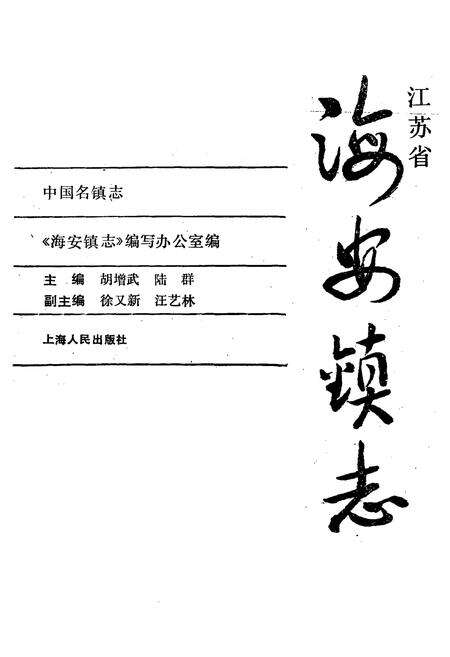 江苏省
海安镇志
中国名镇志
《海安镇志》编写办公室编
主 编 胡增武 陆 群
副主编 徐又新 汪艺林
上海人民出版社